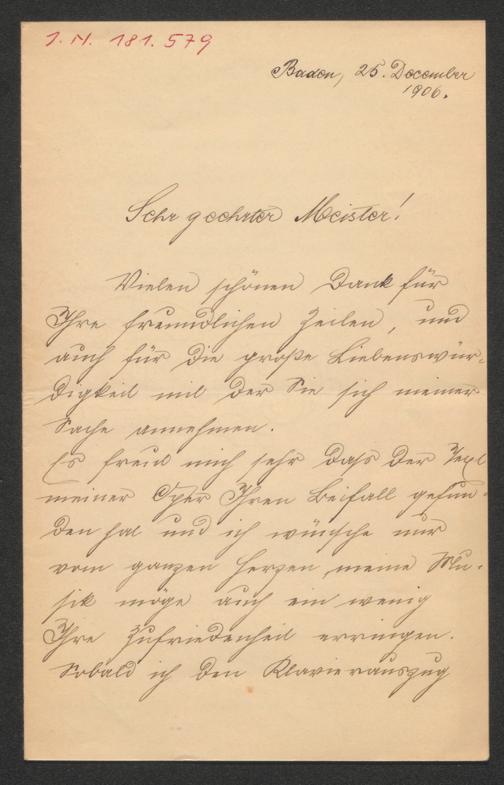 I. N. 181.579
Baden, 25. December
1906.
Sehr geehrter Meister!
Vielen schönen Dank für
Ihre freundlichen Zeilen, und
auch für die große Liebenswür-
digkeit mit der Sie sich meiner
Sache annehmen.
Es freut mich sehr daß der Text
meiner Oper Ihren Beifall gefun-
den hat und ich wünsche nur
vom ganzen Herzen, meine Mu-
sik möge auch ein wenig
Ihre Zufriedenheit erringen.
Sobald ich den Klavierauszug